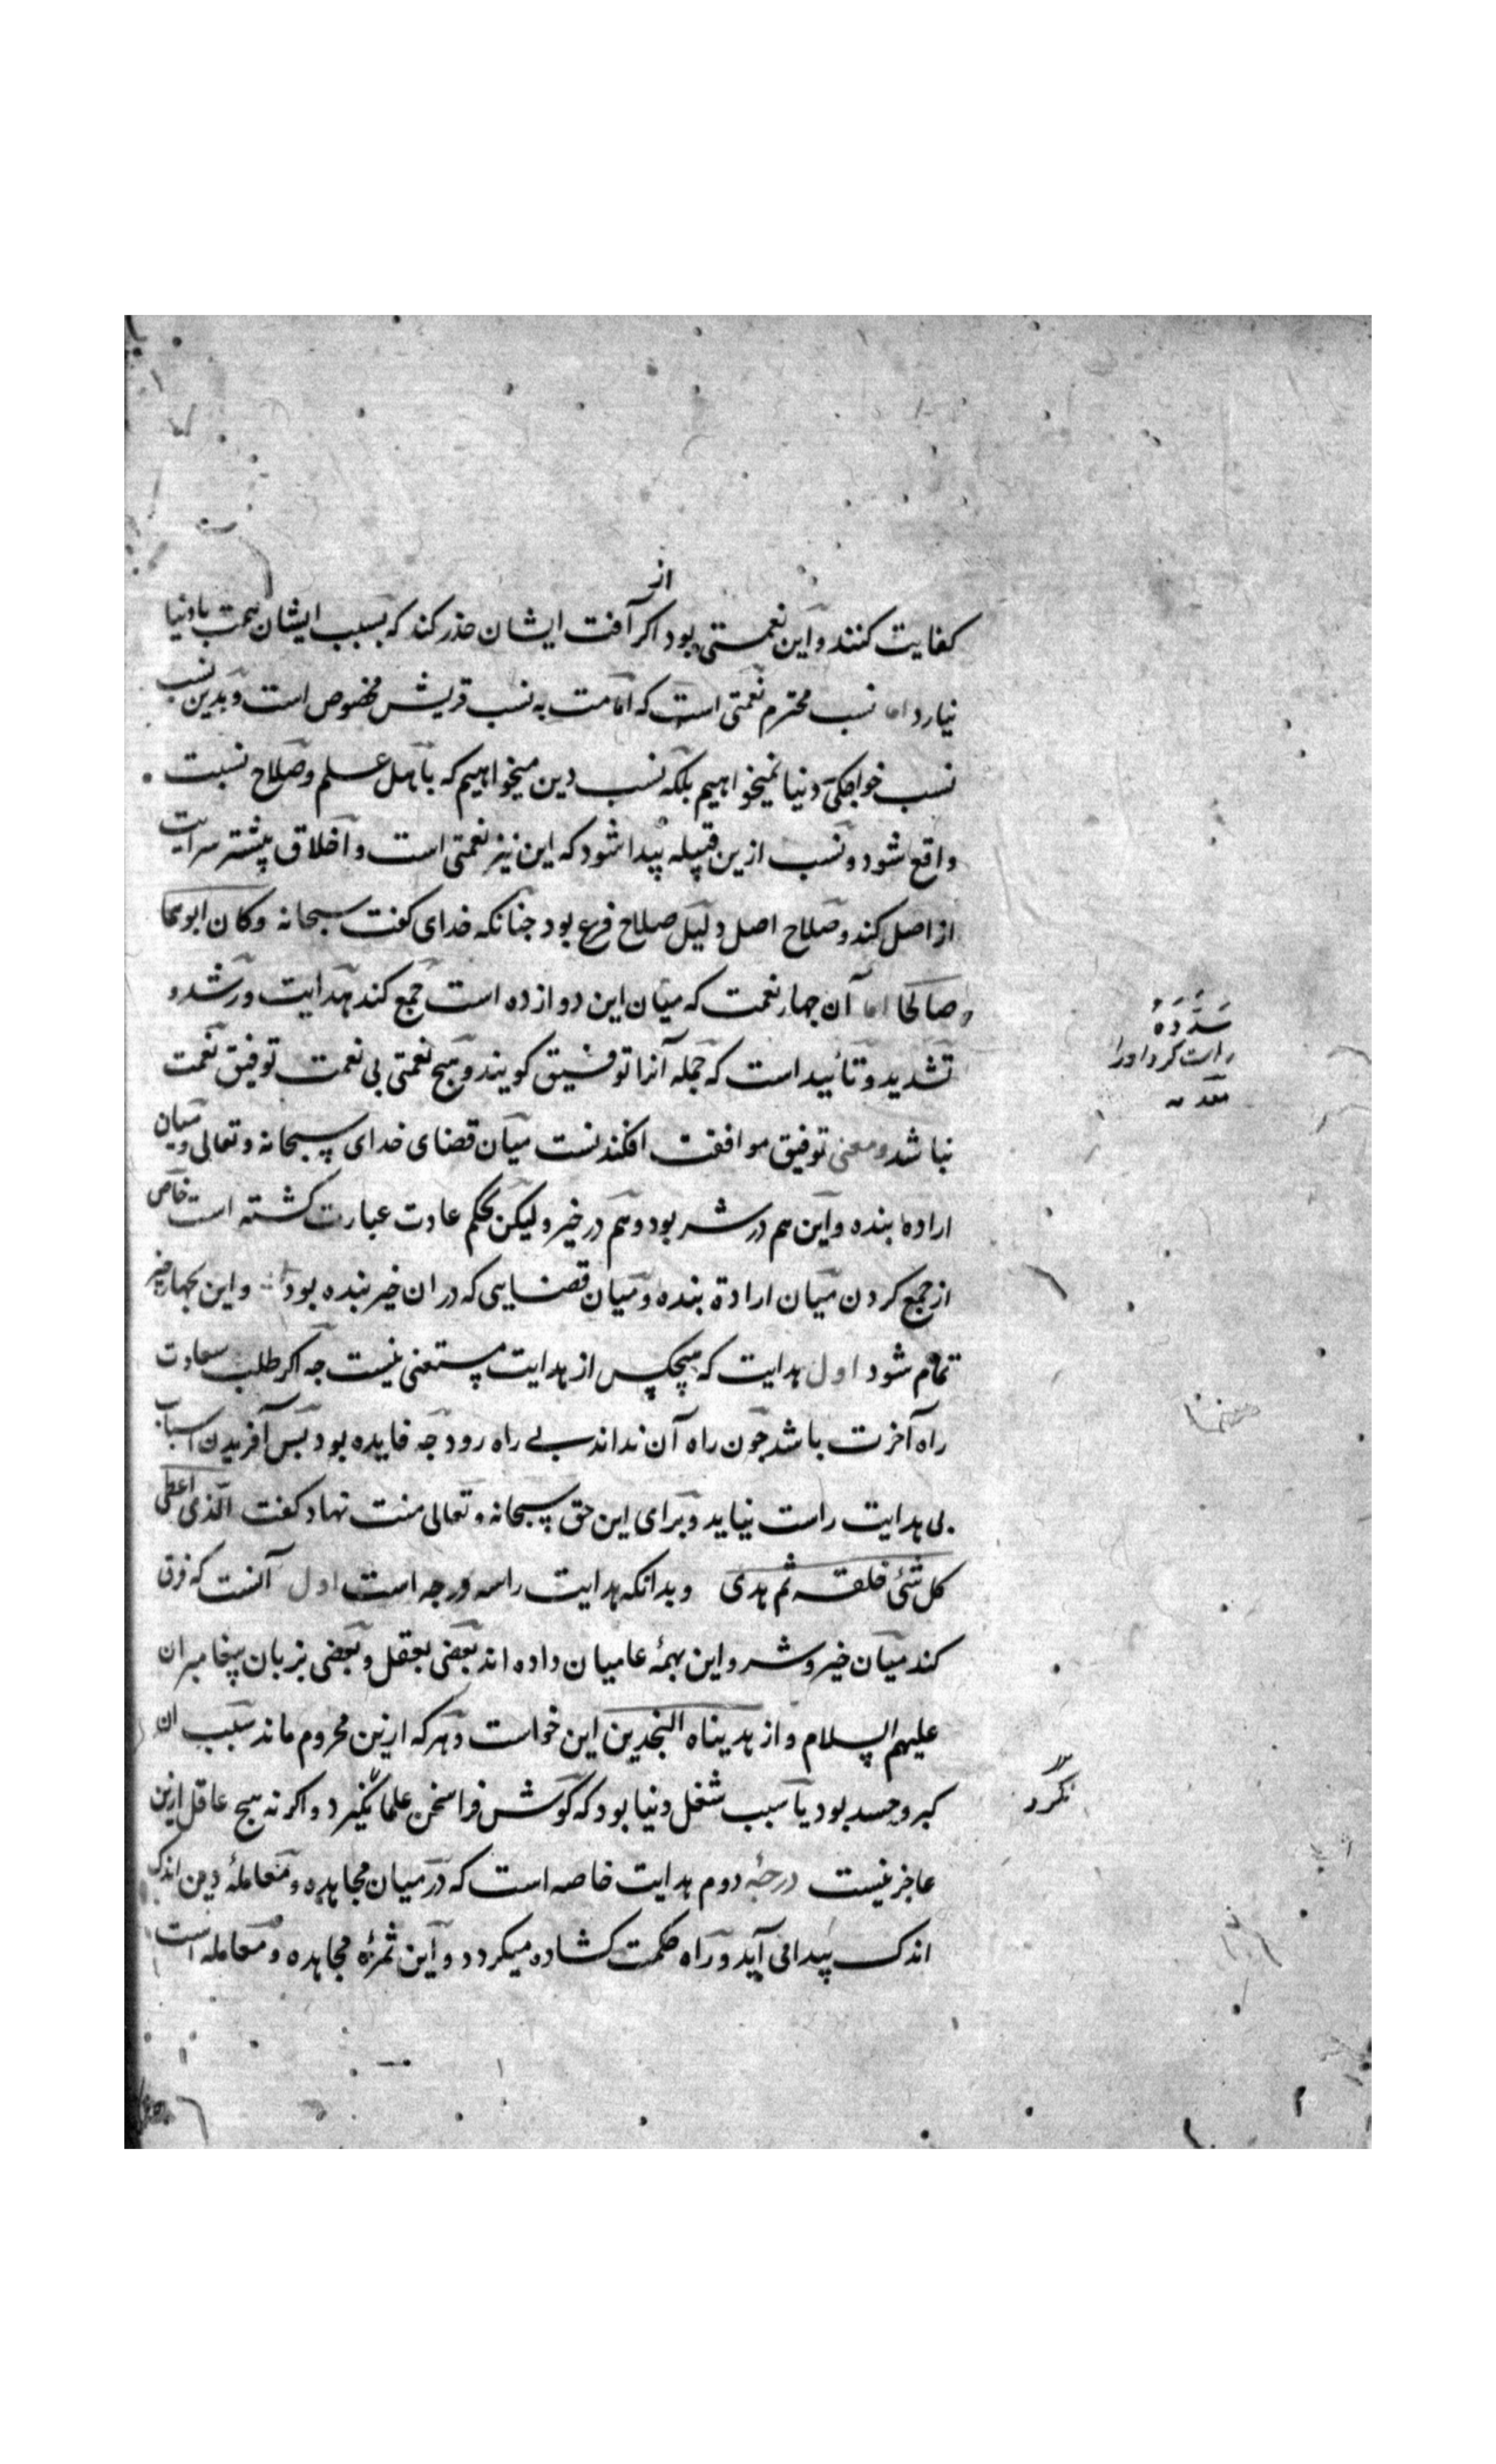 از
کفایت کنند و این نعمتی بود اکر آفت ایشان حذر کند که بسبب ایشان همت با دنیا
نیارد اما نسب محترم نعمتی است که امامت به نسب قریش مخصوص است و بدین نسب
نسب خواجکی دنیا نمیخواهیم بلکه نسب دین میخواهیم که باهل علم و صلاح نسبت
واقع شود و نسب ازین قبیله پیدا شود که این نیز نعمتی است و اخلاق پیشتر سرایت
از اصل کند و صلاح اصل دلیل صلاح فرع بود جنانکه خدای کفت سبحانه وکان ابوهما
صالحا اما آن جهار نعمت که میان این دوازده است جمع کند هدایت و رشد و
تشدید و تأیید است که جمله آنرا توفیق کویند و هیج نعمتی بی نعمت توفیق نعمت
نباشد و معنی توفیق موافقت افکندنست میان قضای خدای سبحانه و تعالی و میان
ارادهٔ بنده و این هم در شر بود و هم در خیر ولیکن بحکم عادت عبارت کشته است خاص
از جمع کردن میان ارادة بنده و میان قضایی که در ان خیر بنده بود و این بجهار خیر
تمام شود اول هدایت که هیچکس از هدایت مستغنی نیست جه اکر طلب سعادت
راه آخرت باشد جون راه آن نداند بی راه رود جه فایده بود بس آفریدن اسباب
بی هدایت راست نیاید و برای این حق سبحانه و تعالی منت نهاد کفت الذی اعطی
کل شئ خلقه ثم هدی وبدانکه هدایت را سه درجه است اول آنست که فرق
کند میان خیر و شر و این بهمهٔ عامیان داده اند بعضی بعقل و بعضی بزبان پیغامبران
علیهم السلام و از هدیناه النجدین این خواست و هر که ازین محروم ماند سبب ان
کبر و حسد بود یا سبب شغل دنیا بود که کوش فرا سخن علما نکیرد و اکر نه هیج عاقل ازین
عاجز نیست درجهٔ دوم هدایت خاصه است که در میان مجاهده و معاملهٔ دین اندک
اندک پیدا می آید و راه حکمت کشاده میکردد و این ثمرهٔ مجاهده و معامله است
سَدَّدَهُ
راست کرد اورا
نکرد